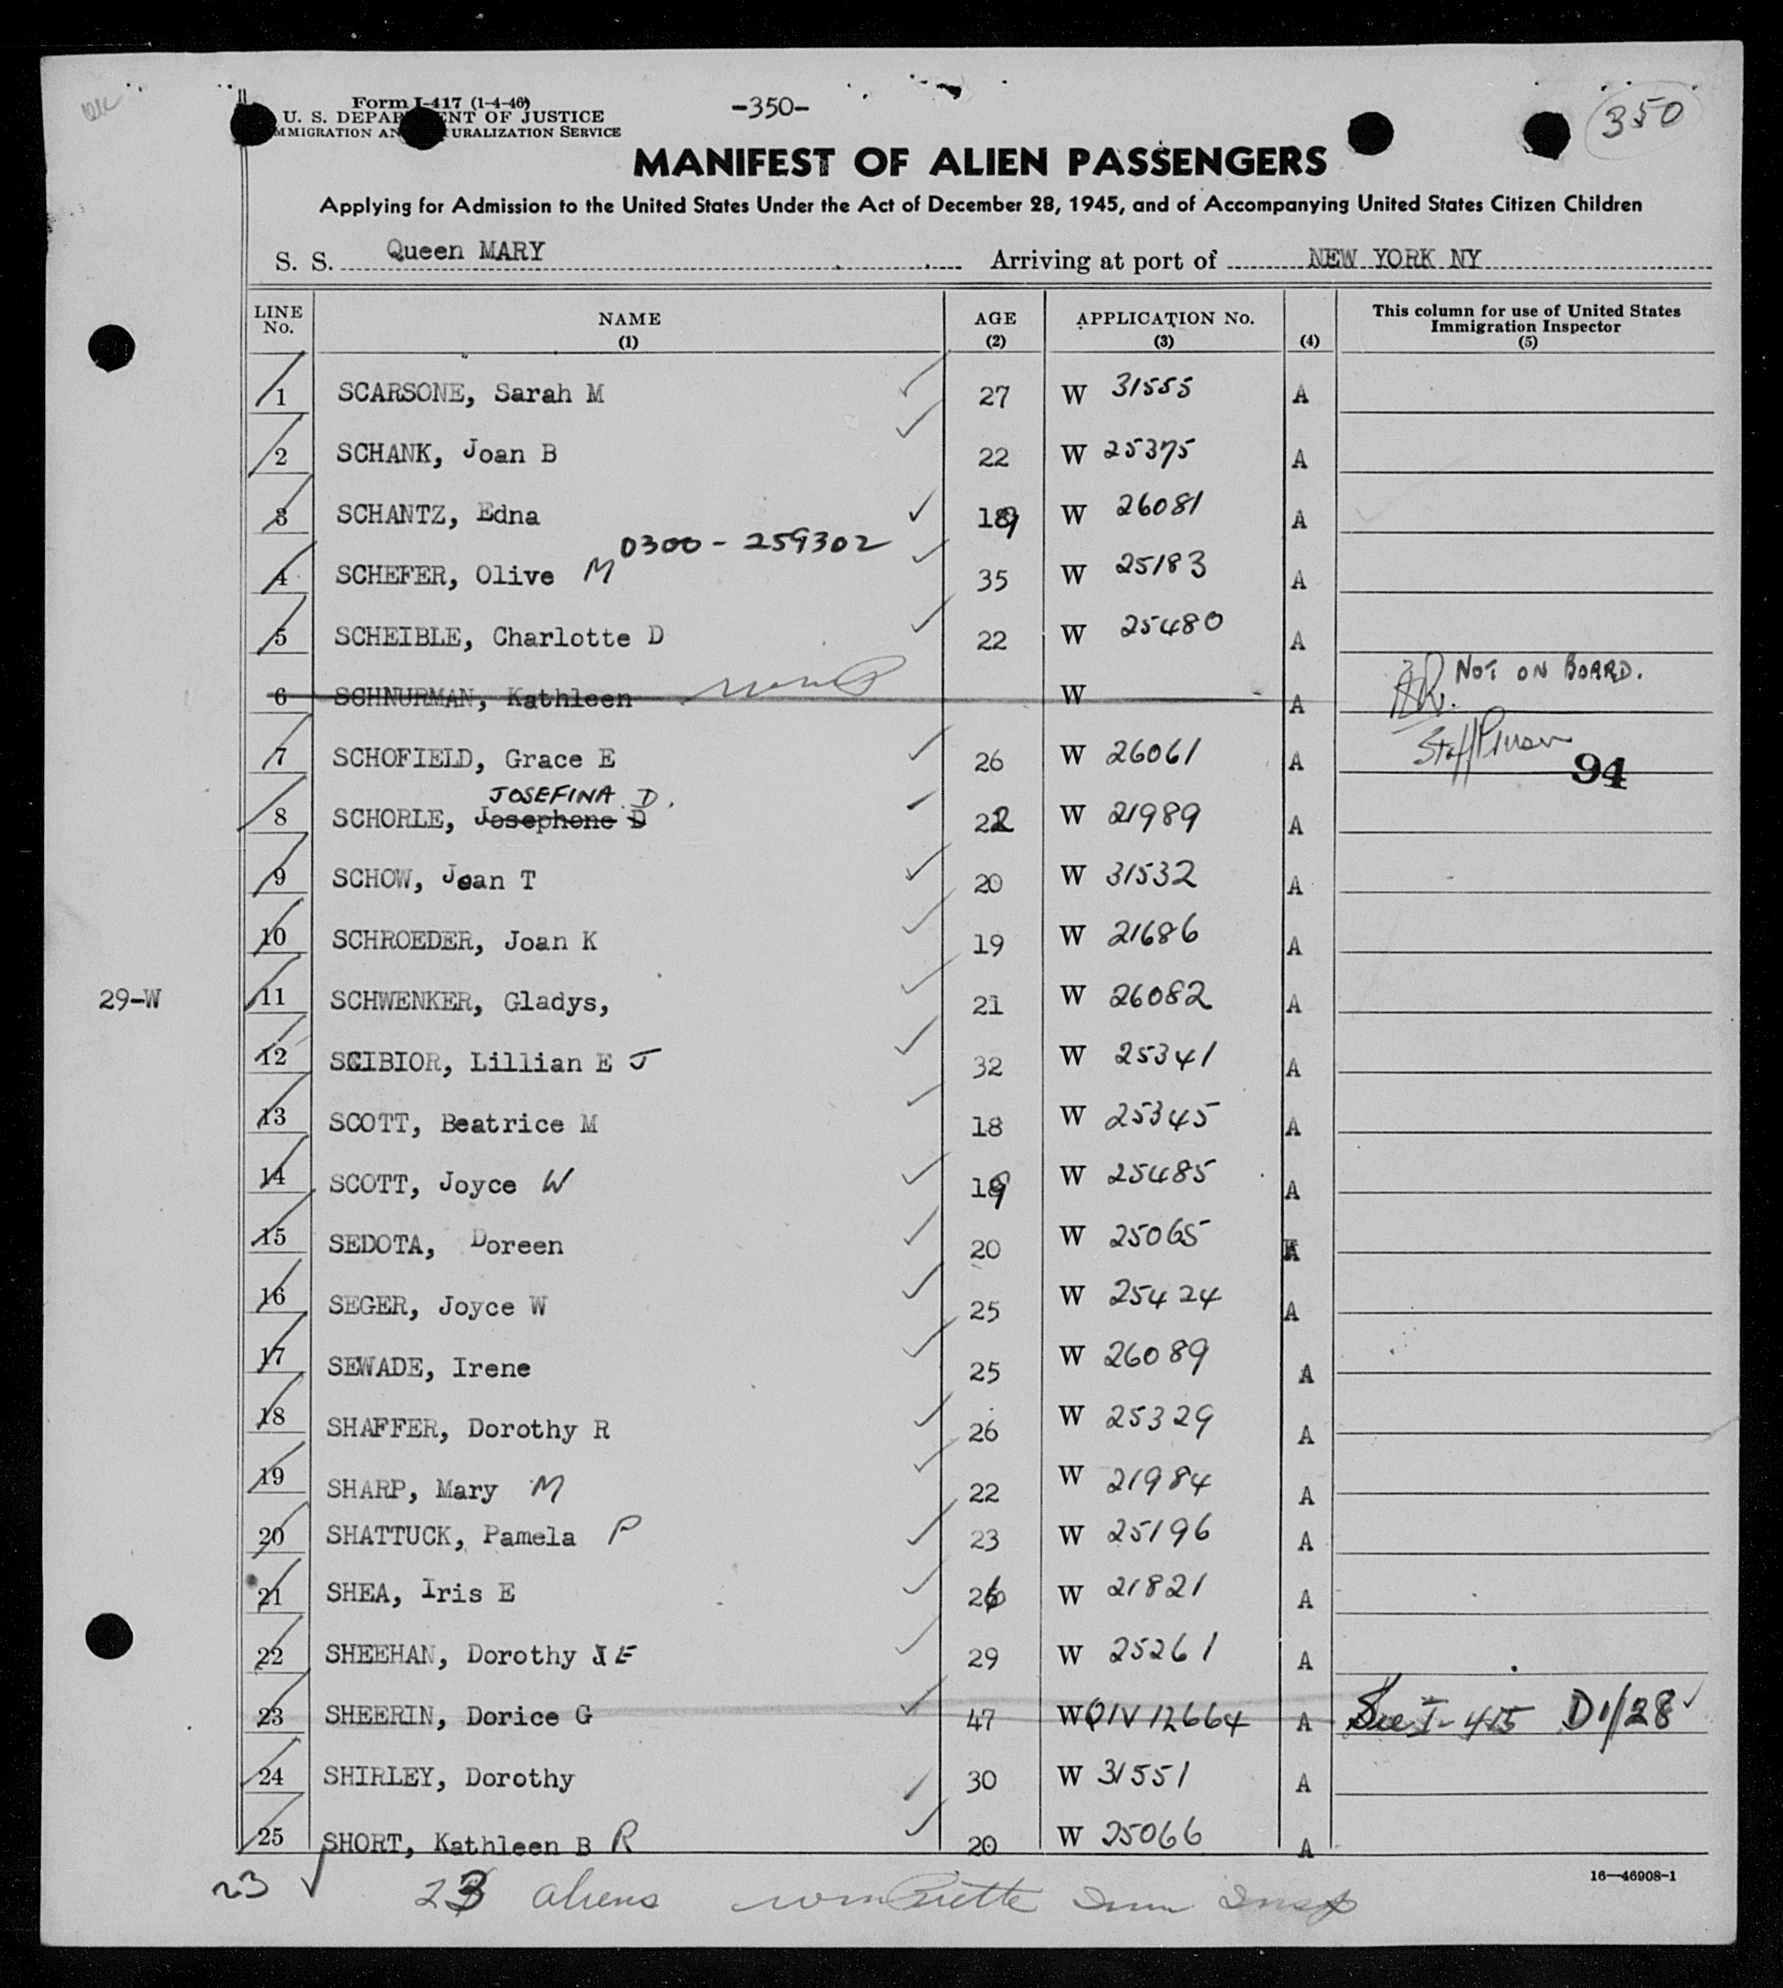 Form I-417 (1-4-46)
U. S. DEPARTMENT OF JUSTICE
IMMIGRATION AND NATURALIZATION SERVICE
-350-
350
MANIFEST OF ALIEN PASSENGERS
Applying for Admission to the United States Under the Act of December 28, 1945, and of Accompanying United States Citizen Children
S. S. Queen MARY Arriving at port of NEW YORK NY
LINE No. NAME (1) AGE (2) APPLICATION No. (3) (4) This column for use of United States Immigration Inspector (5)
1 SCARSONE, Sarah M 27 W 31555 A
2 SCHANK, Joan B 22 W 25375 A
3 SCHANTZ, Edna 19 W 26081 A
0300-259302
4 SCHEFER, Olive M 35 W 25183 A
5 SCHEIBLE, Charlotte D 22 W 25480 A
6 SCHNURMAN, Kathleen W A NOT ON BOARD.
7 SCHOFIELD, Grace E 26 W 26061 A 94
JOSEFINA D.
8 SCHORLE, Josephone D 22 W 21989 A
9 SCHOW, Jean T 20 W 31532 A
10 SCHROEDER, Joan K 19 W 21686 A
29-W 11 SCHWENKER, Gladys, 21 W 26082 A
12 SCIBIOR, Lillian E J 32 W 25341 A
13 SCOTT, Beatrice M 18 W 25345 A
14 SCOTT, Joyce W 19 W 25485 A
15 SEDOTA, Doreen 20 W 25065 A
16 SEGER, Joyce W 25 W 25424 A
17 SEWADE, Irene 25 W 26089 A
18 SHAFFER, Dorothy R 26 W 25329 A
19 SHARP, Mary M 22 W 21984 A
20 SHATTUCK, Pamela P 23 W 25196 A
21 SHEA, Iris E 26 W 21821 A
22 SHEEHAN, Dorothy E 29 W 25261 A
23 SHEERIN, Dorice G 47 W QIV 12664 A See I-415 D1/28
24 SHIRLEY, Dorothy 30 W 31551 A
25 SHORT, Kathleen B R 20 W 25066 A
16—46908-1
23 23 aliens Imm Insp